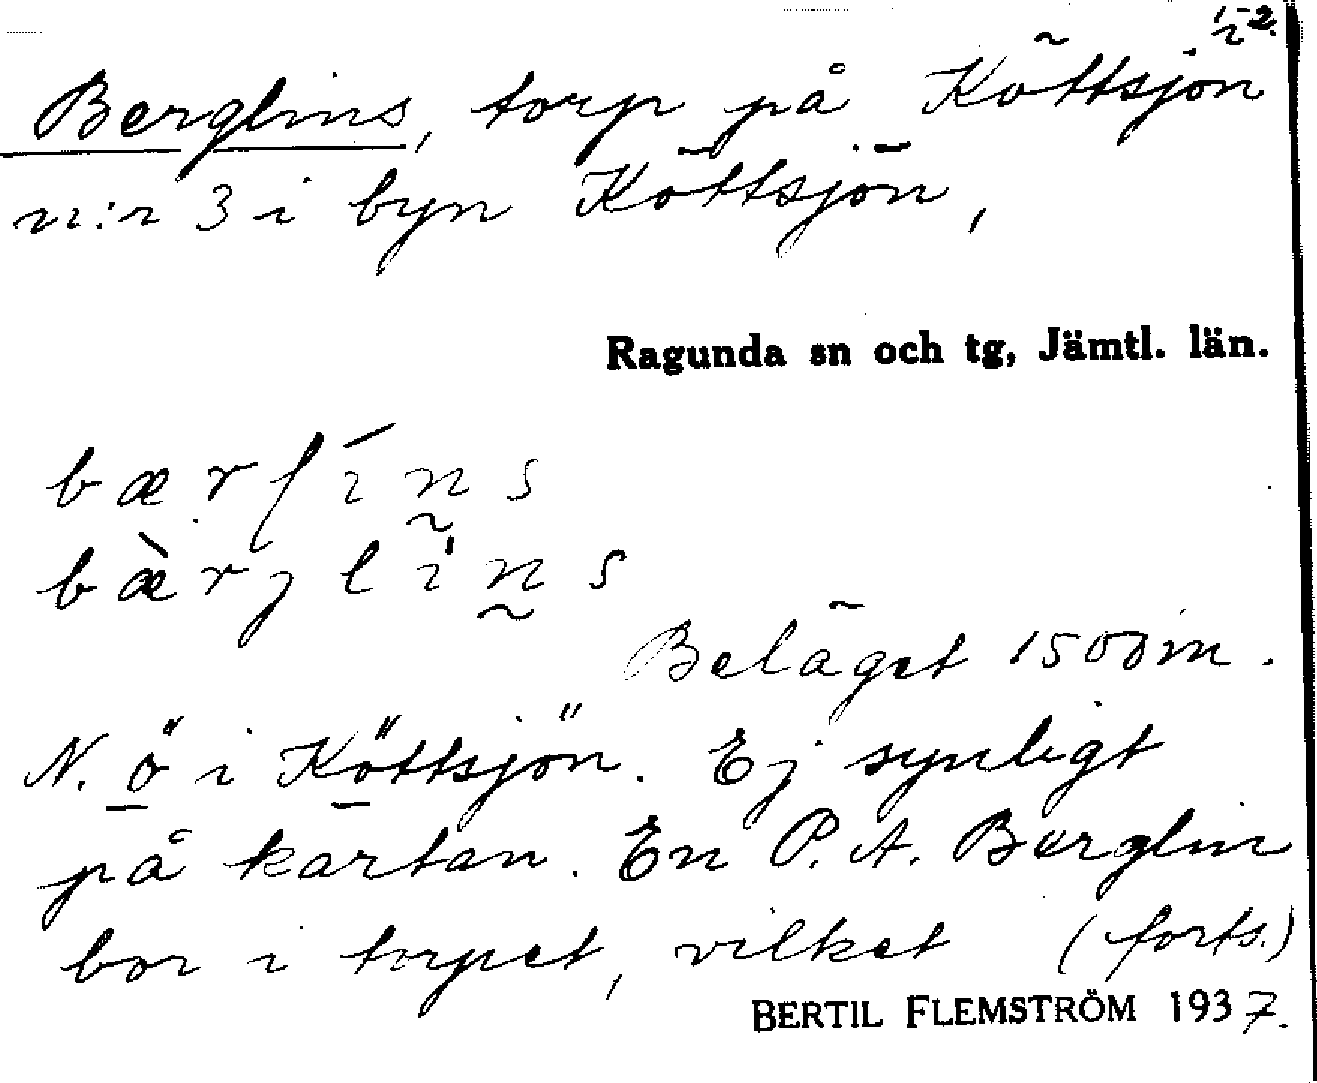 1-2
Berglins, torp på Köttsjön
n:r 3 i byn Köttsjön,
Ragunda sn och tg, Jämtl. län.
Beläget 1500 m.
N. ö i Köttsjön. Ej synligt
på kartan. En P. A. Berglin
bor i torpet, vilket (forts.)
BERTIL FLEMSTRÖM 1937.